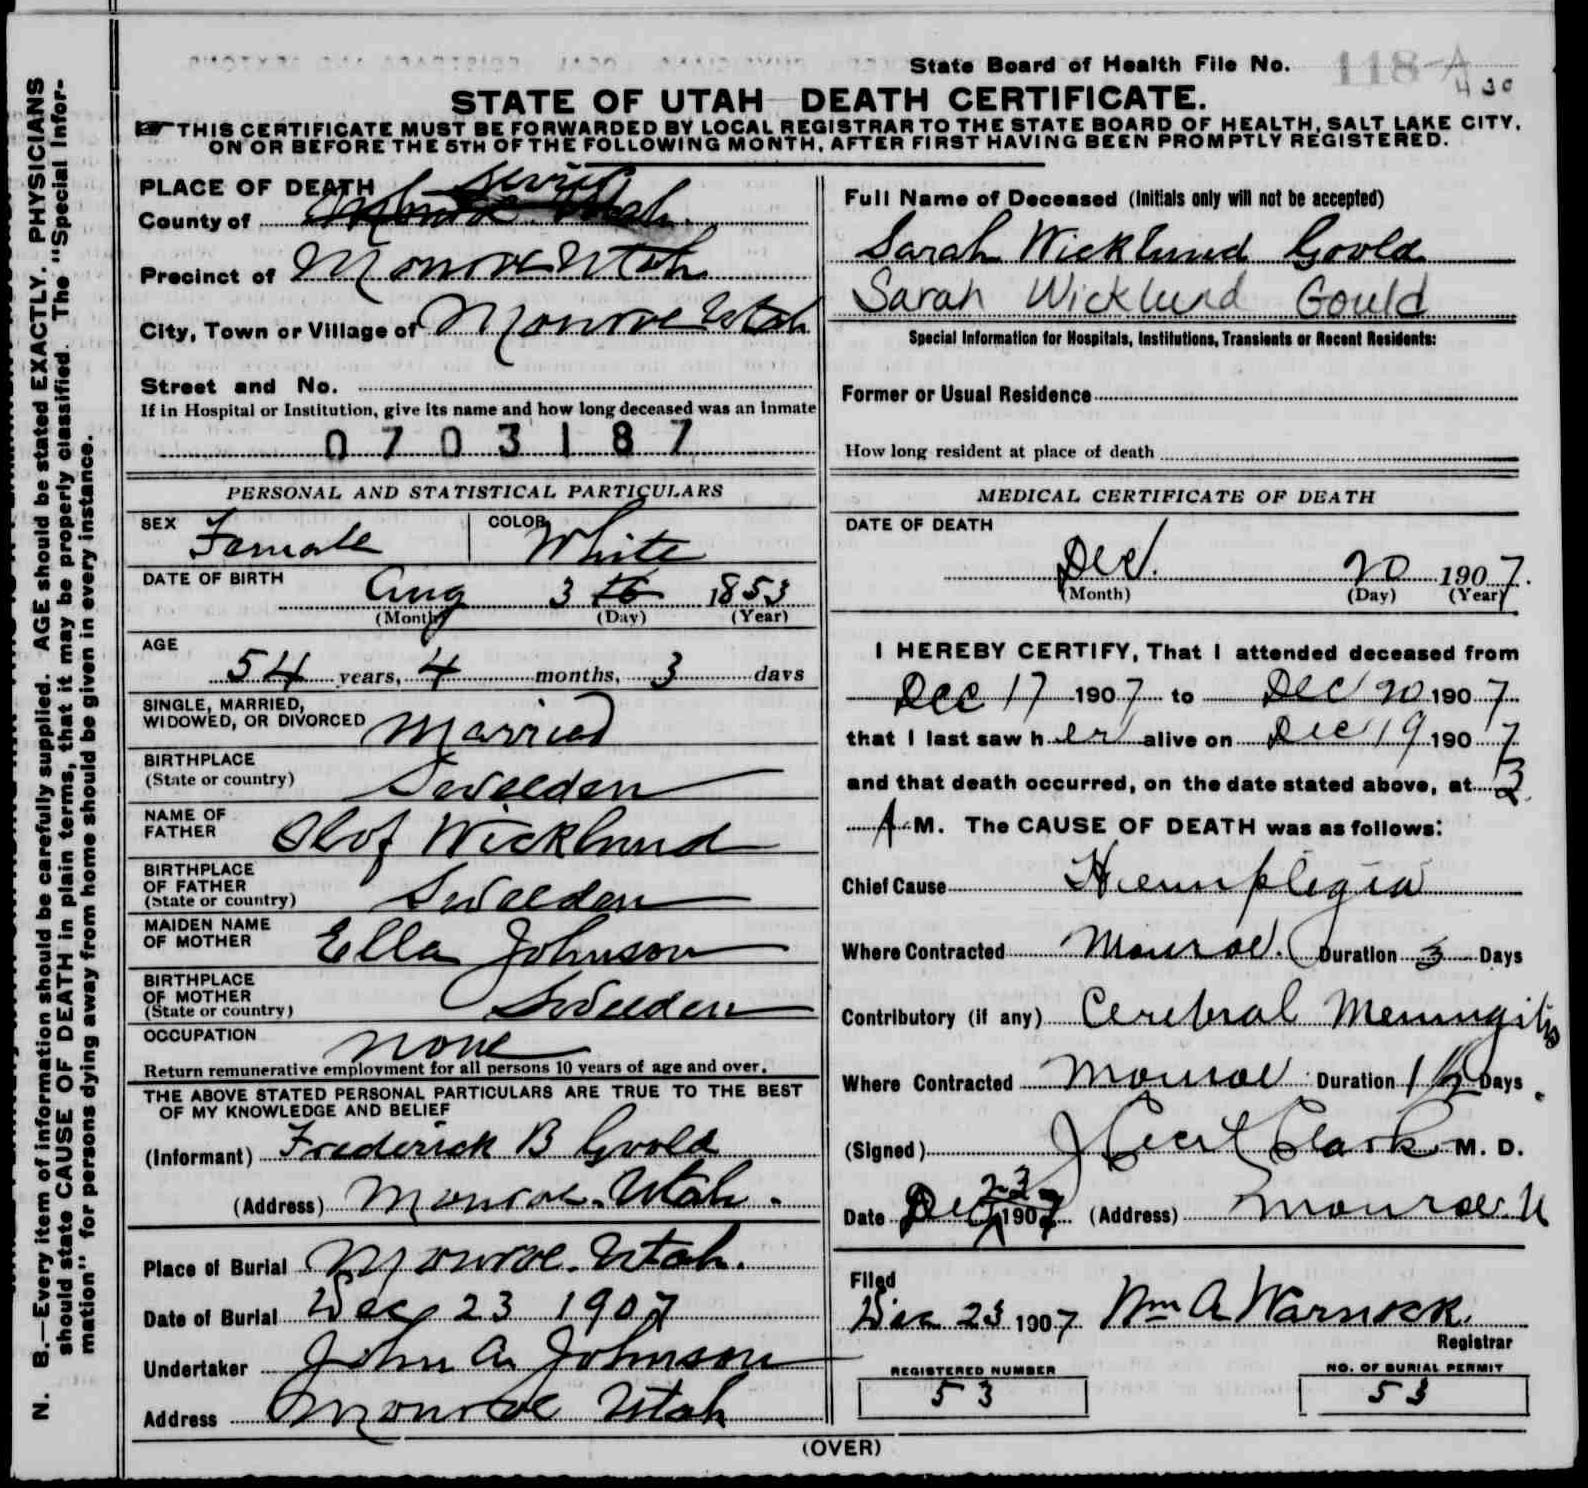 State Board of Health File No. 118-A
430
STATE OF UTAH DEATH CERTIFICATE.
THIS CERTIFICATE MUST BE FORWARDED BY LOCAL REGISTRAR TO THE STATE BOARD OF HEALTH, SALT LAKE CITY,
ON OR BEFORE THE 5TH OF THE FOLLOWING MONTH, AFTER FIRST HAVING BEEN PROMPTLY REGISTERED.
N. B.—Every item of information should be carefully supplied. AGE should be stated EXACTLY. PHYSICIANS
should state CAUSE OF DEATH in plain terms, that it may be properly classified. The "Special Infor-
mation" for persons dying away from home should be given in every instance.
PLACE OF DEATH
Sevier
County of Monroe Utah.
Precinct of Monroe Utah
City, Town or Village of Monroe Utah
Street and No.
If in Hospital or Institution, give its name and how long deceased was an inmate
0703187
PERSONAL AND STATISTICAL PARTICULARS
SEX Female COLOR White
DATE OF BIRTH
Aug 3 16 1853
(Month) (Day) (Year)
AGE
54 years, 4 months, 3 days
SINGLE, MARRIED,
WIDOWED, OR DIVORCED Married
BIRTHPLACE
(State or country) Sweeden
NAME OF
FATHER Olof Wicklund
BIRTHPLACE
OF FATHER
(State or country) Sweeden
MAIDEN NAME
OF MOTHER Ella Johnson
BIRTHPLACE
OF MOTHER
(State or country) Sweeden
OCCUPATION none
Return remunerative employment for all persons 10 years of age and over.
THE ABOVE STATED PERSONAL PARTICULARS ARE TRUE TO THE BEST
OF MY KNOWLEDGE AND BELIEF
(Informant) Frederick B Goold
(Address) Monroe. Utah.
Place of Burial Monroe. Utah.
Date of Burial Dec 23 1907
Undertaker John A. Johnson
Address Monroe Utah
Full Name of Deceased (Initials only will not be accepted)
Sarah Wicklund Goold
Sarah Wicklund Gould
Special Information for Hospitals, Institutions, Transients or Recent Residents:
Former or Usual Residence
How long resident at place of death
MEDICAL CERTIFICATE OF DEATH
DATE OF DEATH
Dec. 20 1907.
(Month) (Day) (Year)
I HEREBY CERTIFY, That I attended deceased from
Dec 17 1907 to Dec 20 1907
that I last saw her alive on Dec 19 1907
and that death occurred, on the date stated above, at 3
A M. The CAUSE OF DEATH was as follows:
Chief Cause Hemiplegia
Where Contracted Monroe. Duration 3 Days
Contributory (if any) Cerebral Meningitis
Where Contracted Monroe Duration 1 1/2 Days.
(Signed) J Cecil Clark M. D.
23
Date Dec 1907 (Address) Monroe. U
Filed
Dec 23 1907 Wm A Warnock.
Registrar
REGISTERED NUMBER
53
NO. OF BURIAL PERMIT
53
(OVER)